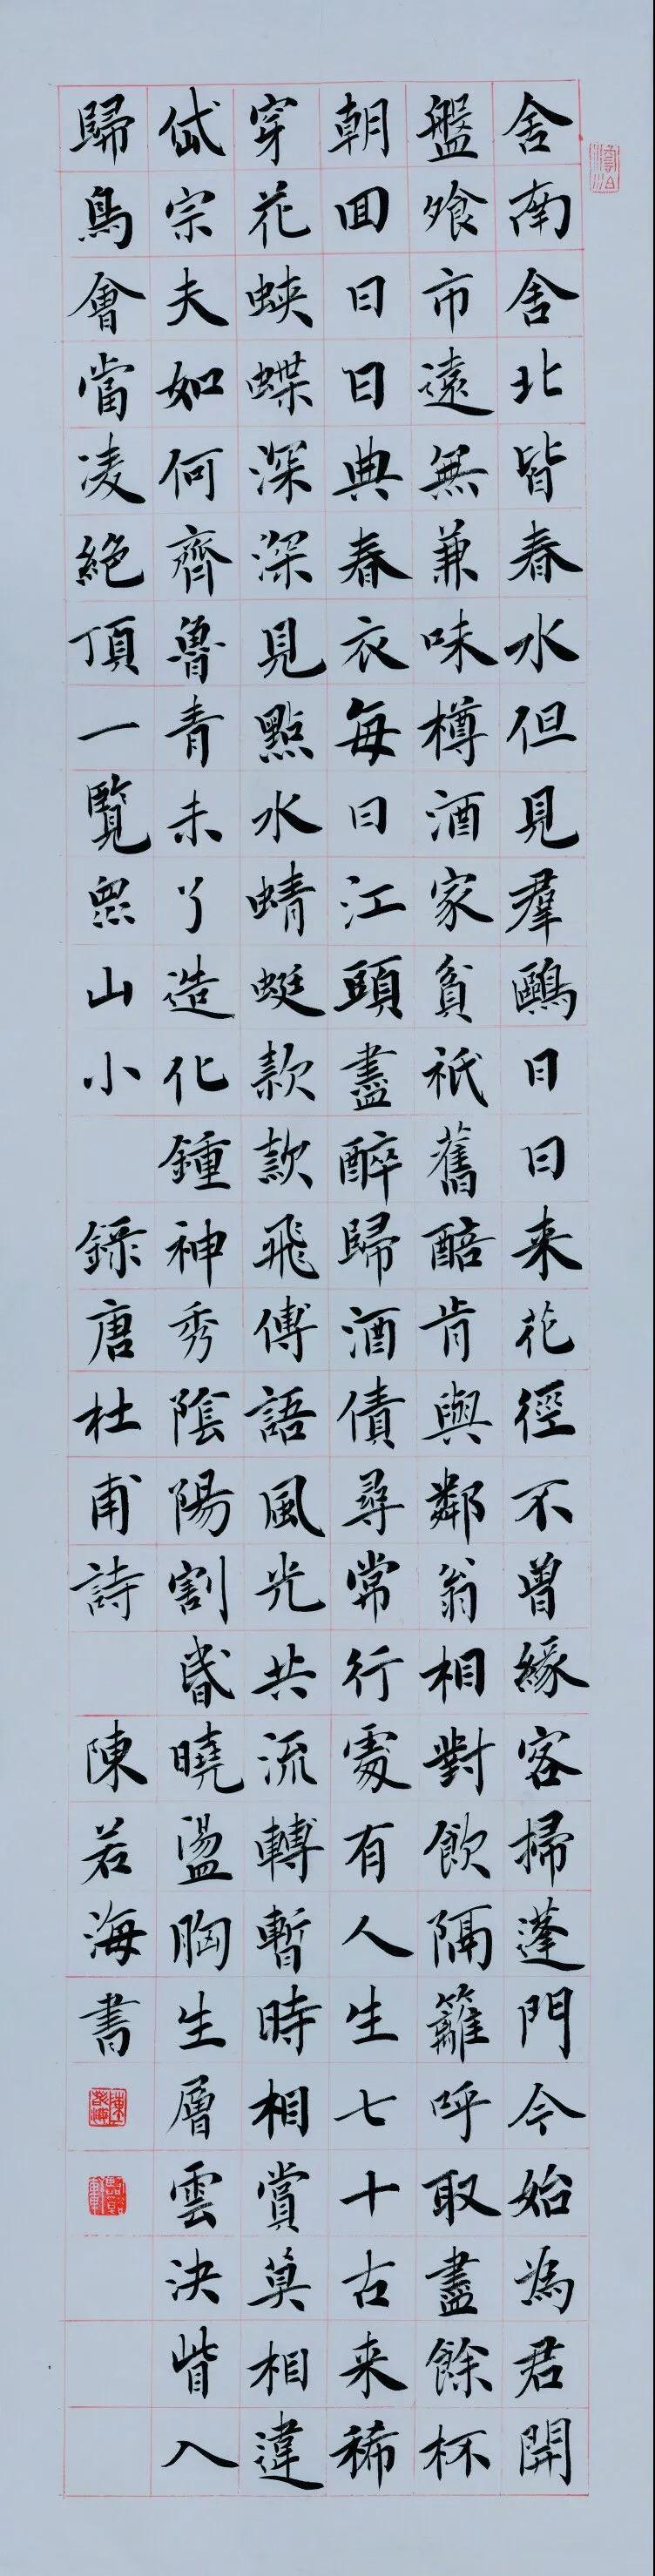 舍南舍北皆春水但見羣鷗日日来花徑不曾緣客掃蓬門今始為君開
盤飧市遠無兼味樽酒家貧祇舊醅肯與鄰翁相對飲隔籬呼取盡餘杯
朝回日日典春衣每日江頭盡醉歸酒債尋常行處有人生七十古来稀
穿花蛺蝶深深見點水蜻蜓款款飛傳語風光共流轉暫時相賞莫相違
岱宗夫如何齊魯青未了造化鍾神秀陰陽割昏曉盪胸生層雲決眥入
歸鳥會當凌絕頂一覽眾山小 錄唐杜甫詩 陳若海書